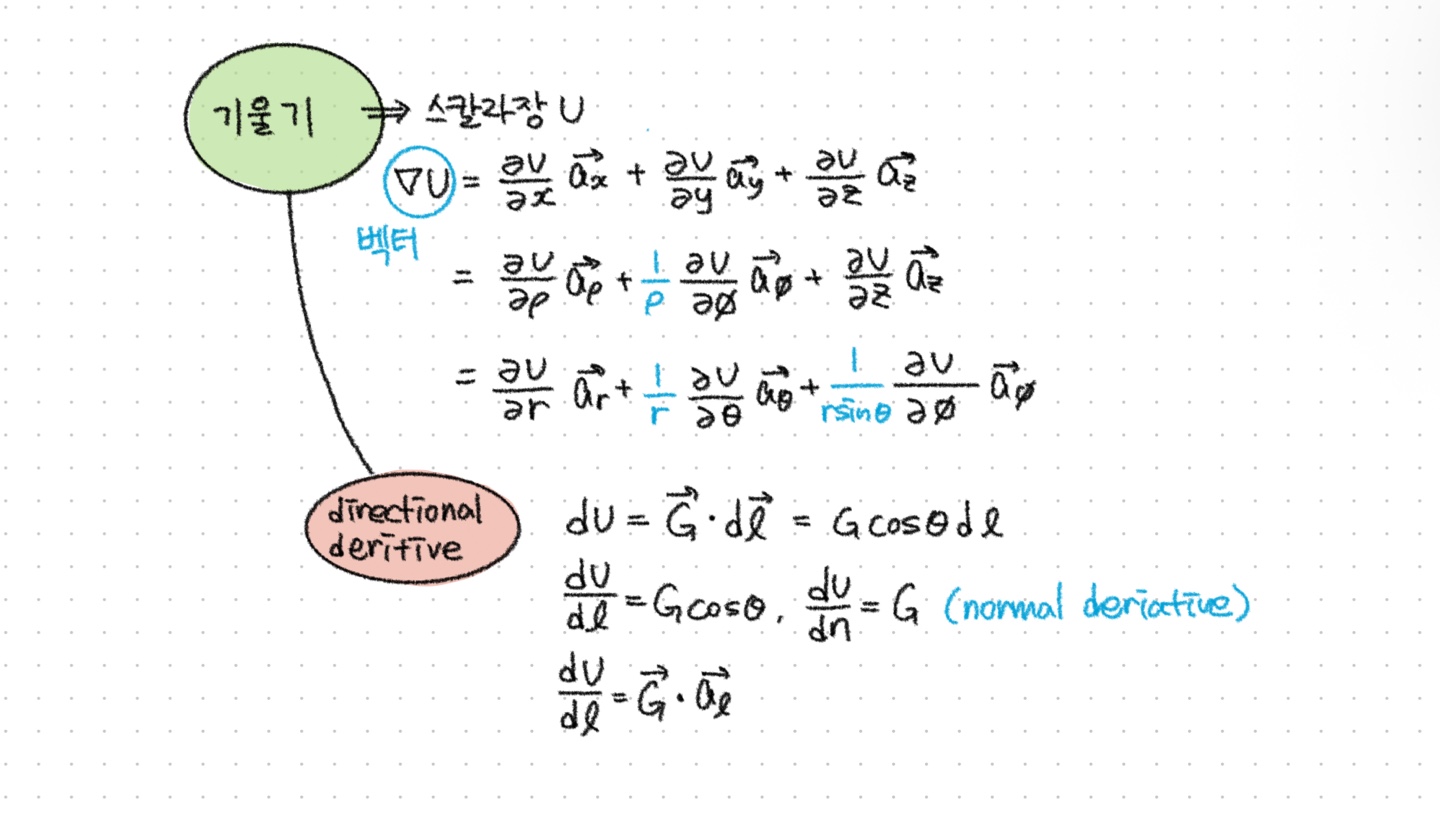 기울기 ⇒ 스칼라장 U
∇U = ∂U/∂x a⃗x + ∂U/∂y a⃗y + ∂U/∂z a⃗z
벡터
= ∂U/∂ρ a⃗ρ + 1/ρ ∂U/∂ø a⃗ø + ∂U/∂z a⃗z
= ∂U/∂r a⃗r + 1/r ∂U/∂θ a⃗θ + 1/rsinθ ∂U/∂ø a⃗ø
directional
deritive
dU = G⃗ · dl⃗ = G cosθ dl
dU/dl = G cosθ, dU/dn = G (normal deriative)
dU/dl = G⃗ · a⃗l